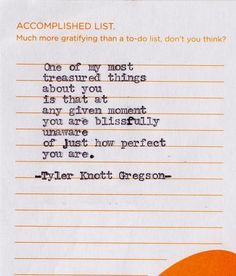 ACCOMPLISHED LIST.
Much more gratifying than a to-do list, don't you think?
One of my most
treasured things
about you
is that at
any given moment
you are blissfully
unaware
of Just how perfect
you are.
-Tyler Knott Gregson-